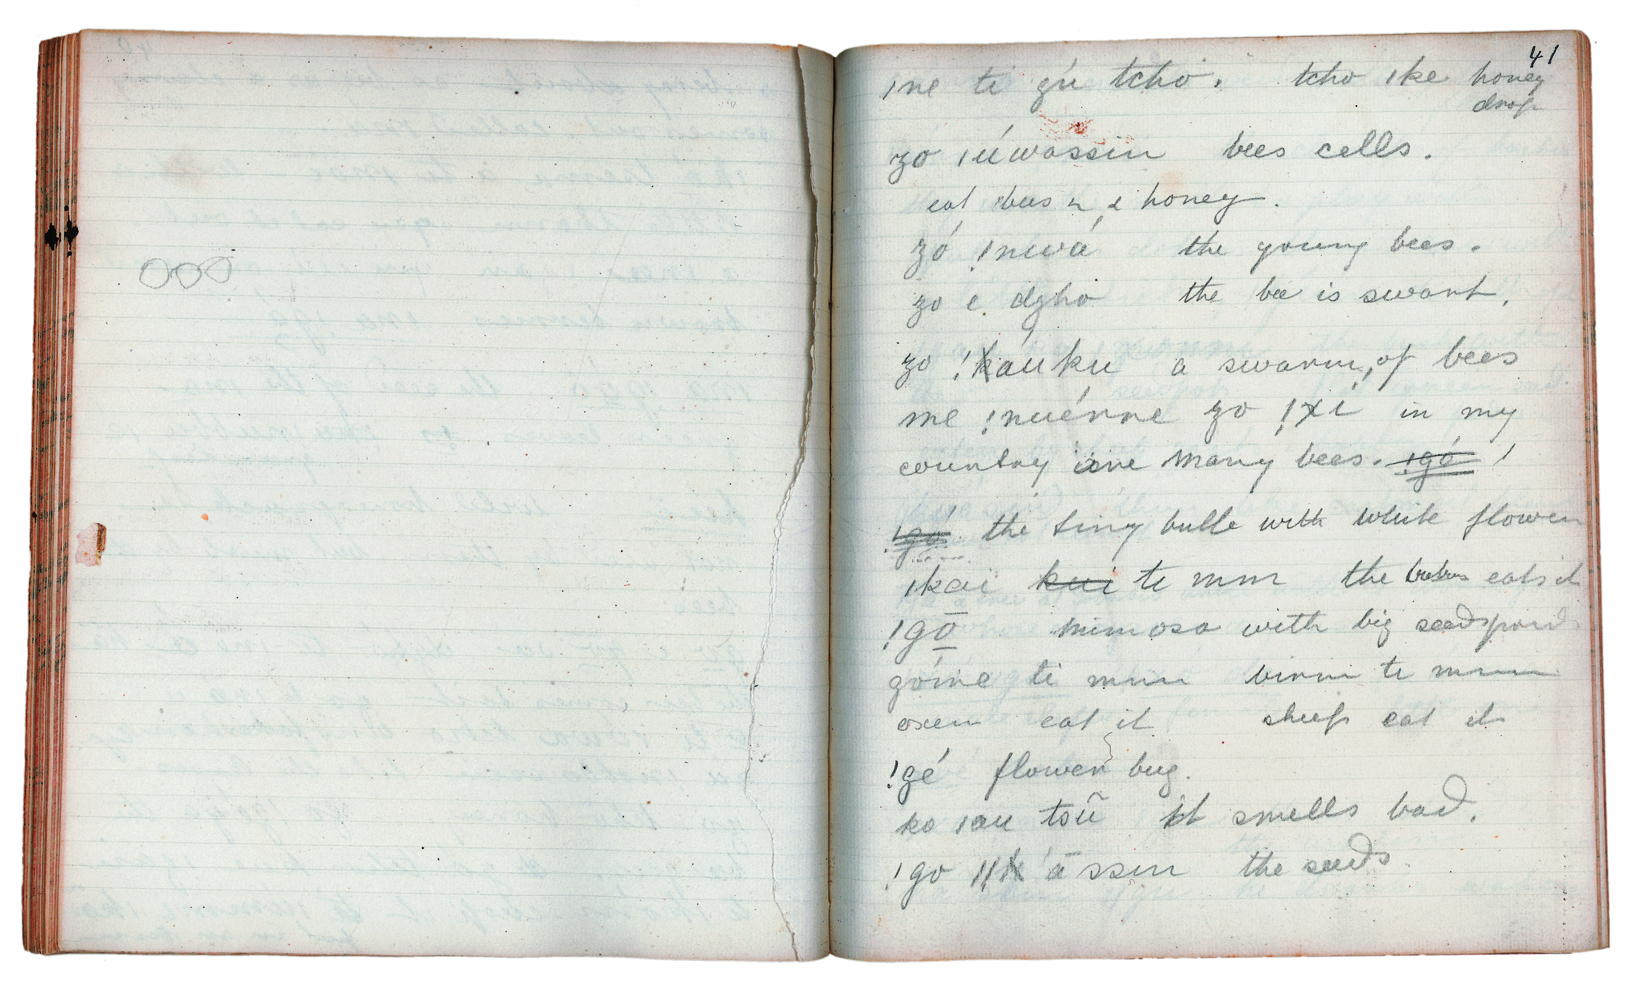 41
ıne ti gú tcho. tcho ıke honey
drop
zo ıúwassin bees cells.
eat bees & honey.
zó !nuvá the young bees.
zo e dzho the bee is swart.
zo !kauku a swarm, of bees
me !nuénne zo !χí in my
country are many bees. !gó !
!go the tiny bulle with white flower
ıkai kui te mm the eats it
!gō mimosa with big seedspods
góine ti mm birrni te mm
oxen eat it sheep eat it
!gé flower bug.
ko ıau tsũ it smells bad.
!go ǁk'āssin the seeds